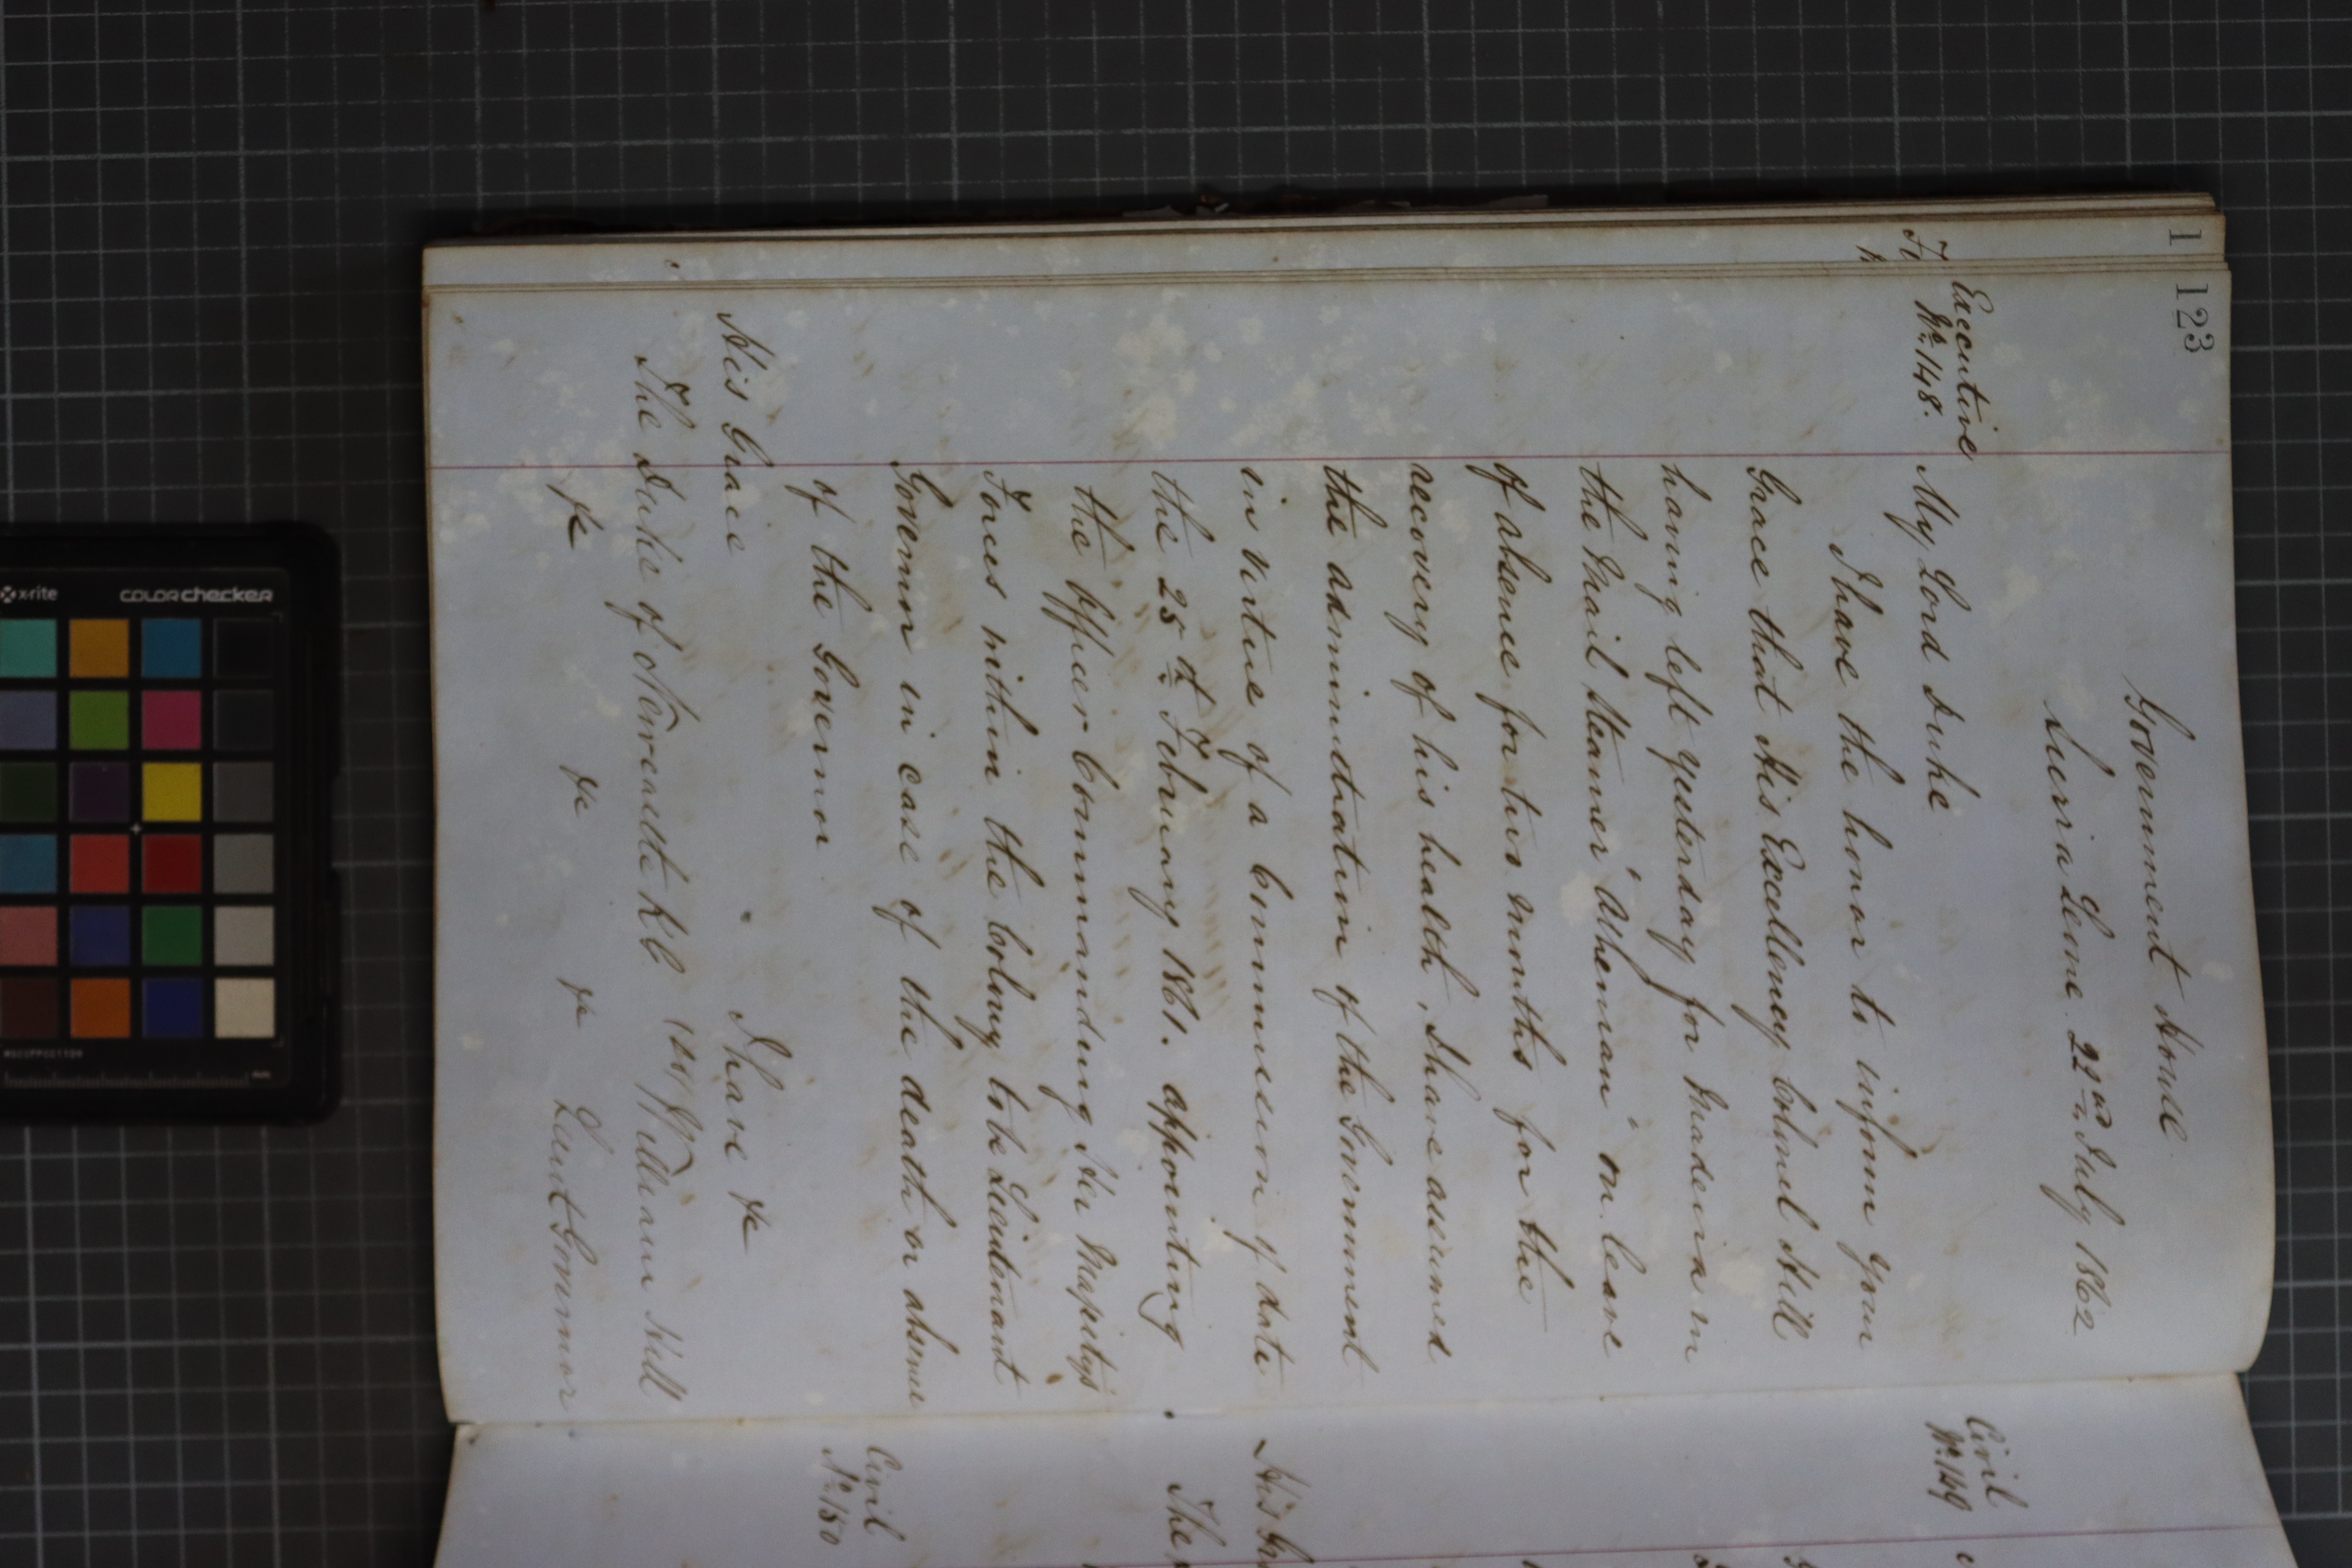 123
Government House
Sierra Leone 22nd July 1862
Executive
No. 148.
My Lord Duke
I have the honor to inform Your
Grace that His Excellency Colonel Hill
having left yesterday for Madeira in
the Mail Steamer "Athenian" on leave
of absence for two months for the
recovery of his health, I have assumed
the administration of the Government
in virtue of a Commission of date
the 25th February 1861. appointing
the Officer Commanding Her Majesty's
Forces within the Colony to be Lieutenant
Governor in case of the death or absence
of the Governor
I have &c
His Grace
The Duke of Newcastle K.G. William Hill
&c &c &c Lieut Governor
Civil
No. 149
His
The
Civil
No. 150
1
x-rite
colorchecker